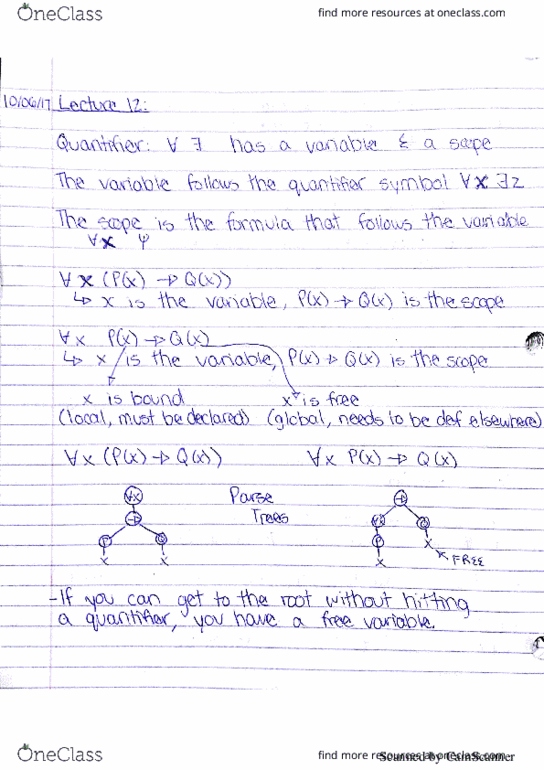 OneClass
find more resources at oneclass.com
10/06/17 Lecture 12:
Quantifier: ∀ ∃ has a variable & a scope
The variable follows the quantifier symbol ∀x ∃z
The scope is the formula that follows the variable
∀x ψ
∀x (P(x) → Q(x))
↳ x is the variable, P(x) → Q(x) is the scope
∀x P(x) → Q(x)
↳ x is the variable, P(x) → Q(x) is the scope
x is bound x is free
(local, must be declared) (global, needs to be def elsewhere)
∀x (P(x) → Q(x)) ∀x P(x) → Q(x)
Parse
Trees
∀x
→
P Q
x x
→
∀x Q
P x
x FREE
- If you can get to the root without hitting
a quantifier, you have a free variable.
OneClass
find more resources at oneclass.com
Scanned by CamScanner